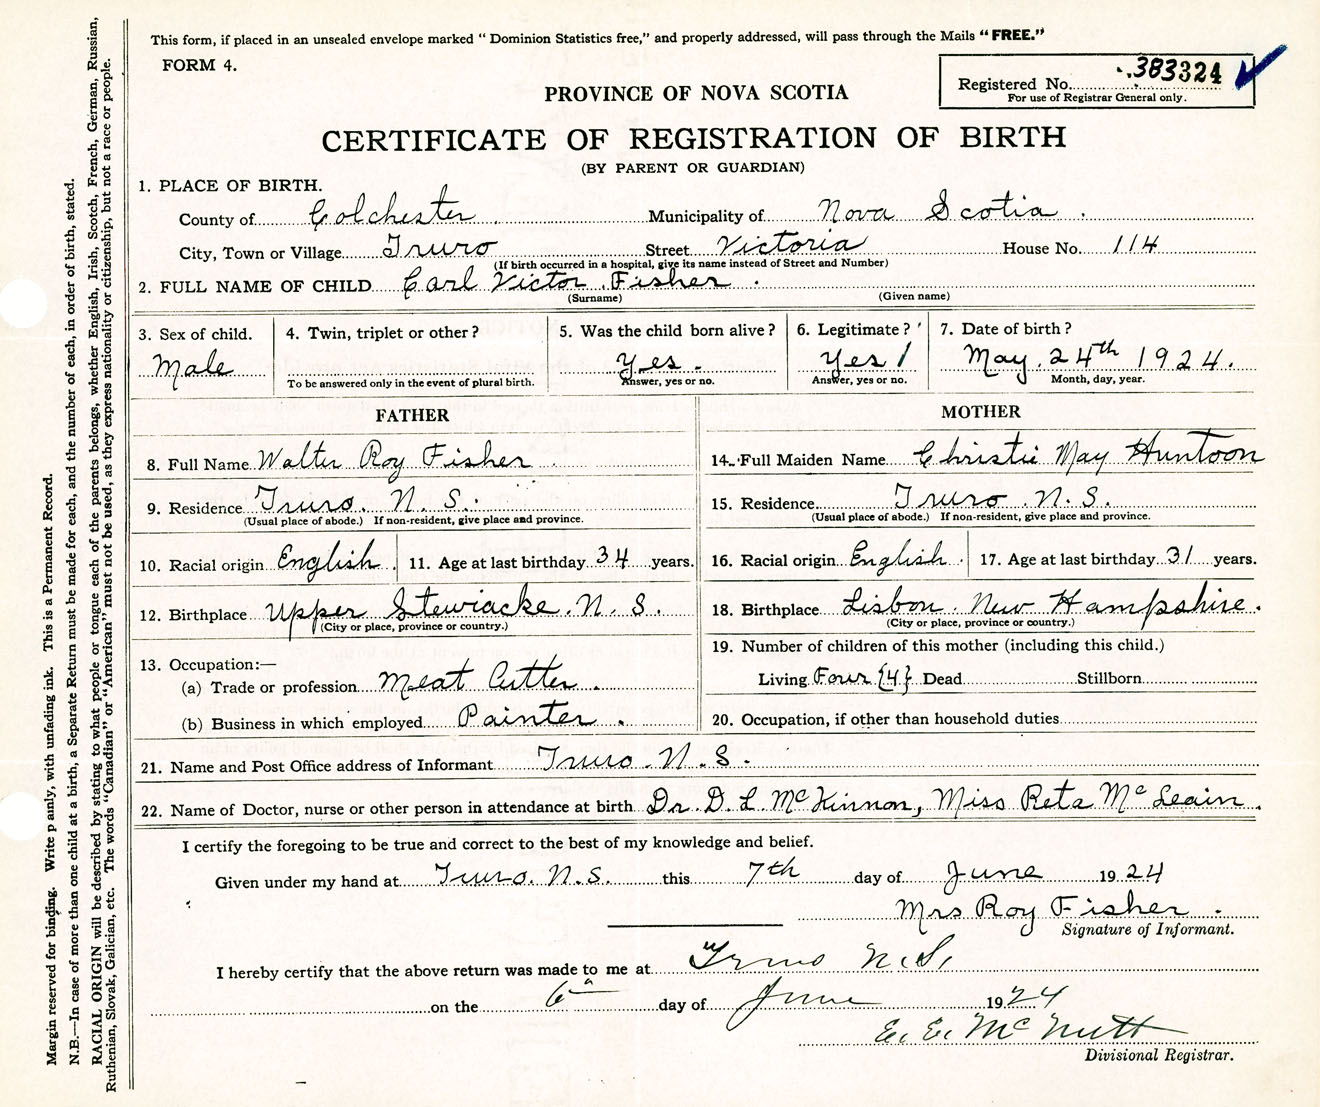 This form, if placed in an unsealed envelope marked “ Dominion Statistics free,” and properly addressed, will pass through the Mails “ FREE.”
FORM 4.
Registered No. 383324
For use of Registrar General only.
PROVINCE OF NOVA SCOTIA
CERTIFICATE OF REGISTRATION OF BIRTH
(BY PARENT OR GUARDIAN)
1. PLACE OF BIRTH.
County of Colchester Municipality of Nova Scotia.
City, Town or Village Truro Street Victoria House No. 114
(If birth occurred in a hospital, give its name instead of Street and Number)
2. FULL NAME OF CHILD Carl Victor Fisher.
(Surname) (Given name)
3. Sex of child. 4. Twin, triplet or other? 5. Was the child born alive? 6. Legitimate? 7. Date of birth?
Male Yes. Yes May. 24th 1924.
To be answered only in the event of plural birth. Answer, yes or no. Answer, yes or no. Month, day, year.
FATHER MOTHER
8. Full Name Walter Roy Fisher 14. Full Maiden Name Christie May Huntoon
9. Residence Truro. N. S. 15. Residence Truro. N. S.
(Usual place of abode.) If non-resident, give place and province. (Usual place of abode.) If non-resident, give place and province.
10. Racial origin English. 11. Age at last birthday 34 years. 16. Racial origin English. 17. Age at last birthday 31 years.
12. Birthplace Upper Stewiacke. N. S. 18. Birthplace Lisbon. New Hampshire.
(City or place, province or country.) (City or place, province or country.)
13. Occupation:— 19. Number of children of this mother (including this child.)
(a) Trade or profession Meat Cutter. Living Four {4} Dead Stillborn
(b) Business in which employed Painter. 20. Occupation, if other than household duties
21. Name and Post Office address of Informant Truro. N. S.
22. Name of Doctor, nurse or other person in attendance at birth Dr. D. L. McKinnon, Miss Reta McLeain.
I certify the foregoing to be true and correct to the best of my knowledge and belief.
Given under my hand at Truro. N. S. this 7th day of June 1924
Mrs Roy Fisher.
Signature of Informant.
I hereby certify that the above return was made to me at Truro N.S.
on the 6th day of June 1924
E. E. McNutt
Divisional Registrar.
Margin reserved for binding. Write p anly, with unfading ink. This is a Permanent Record.
N.B.—In case of more than one child at a birth, a Separate Return must be made for each, and the number of each, in order of birth, stated.
RACIAL ORIGIN will be described by stating to what people or tongue each of the parents belongs, whether English, Irish, Scotch, French, German, Russian,
Ruthenian, Slovak, Galician, etc. The words “Canadian” or “American” must not be used, as they express nationality or citizenship, but not a race or people.